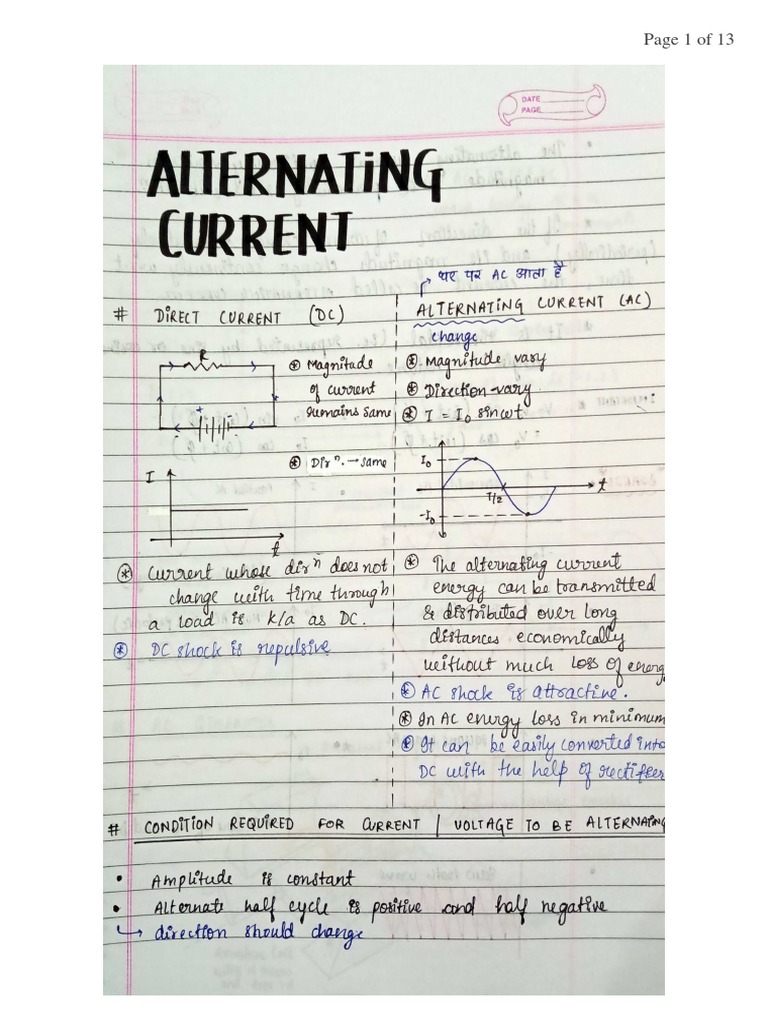 Page 1 of 13
DATE
PAGE
ALTERNATING
CURRENT
→ घर पर AC आता है
# DIRECT CURRENT (DC)
R
⊛ Magnitude
of current
remains same
⊛ Dirⁿ. → same
I
t
⊛ Current whose dirⁿ does not
change with time through
a load is k/a as DC.
⊛ DC shock is repulsive
ALTERNATING CURRENT (AC)
change
⊛ Magnitude vary
⊛ Direction-vary
⊛ I = I₀ sinωt
I₀
T/2
t
-I₀
⊛ The alternating current
energy can be transmitted
& distributed over long
distances economically
without much loss of energy
⊛ AC shock is attractive.
⊛ In AC energy loss in minimum
⊛ It can be easily converted into
DC with the help of rectifier
# CONDITION REQUIRED FOR CURRENT / VOLTAGE TO BE ALTERNATING
• Amplitude is constant
• Alternate half cycle is positive and half negative
↳ direction should change